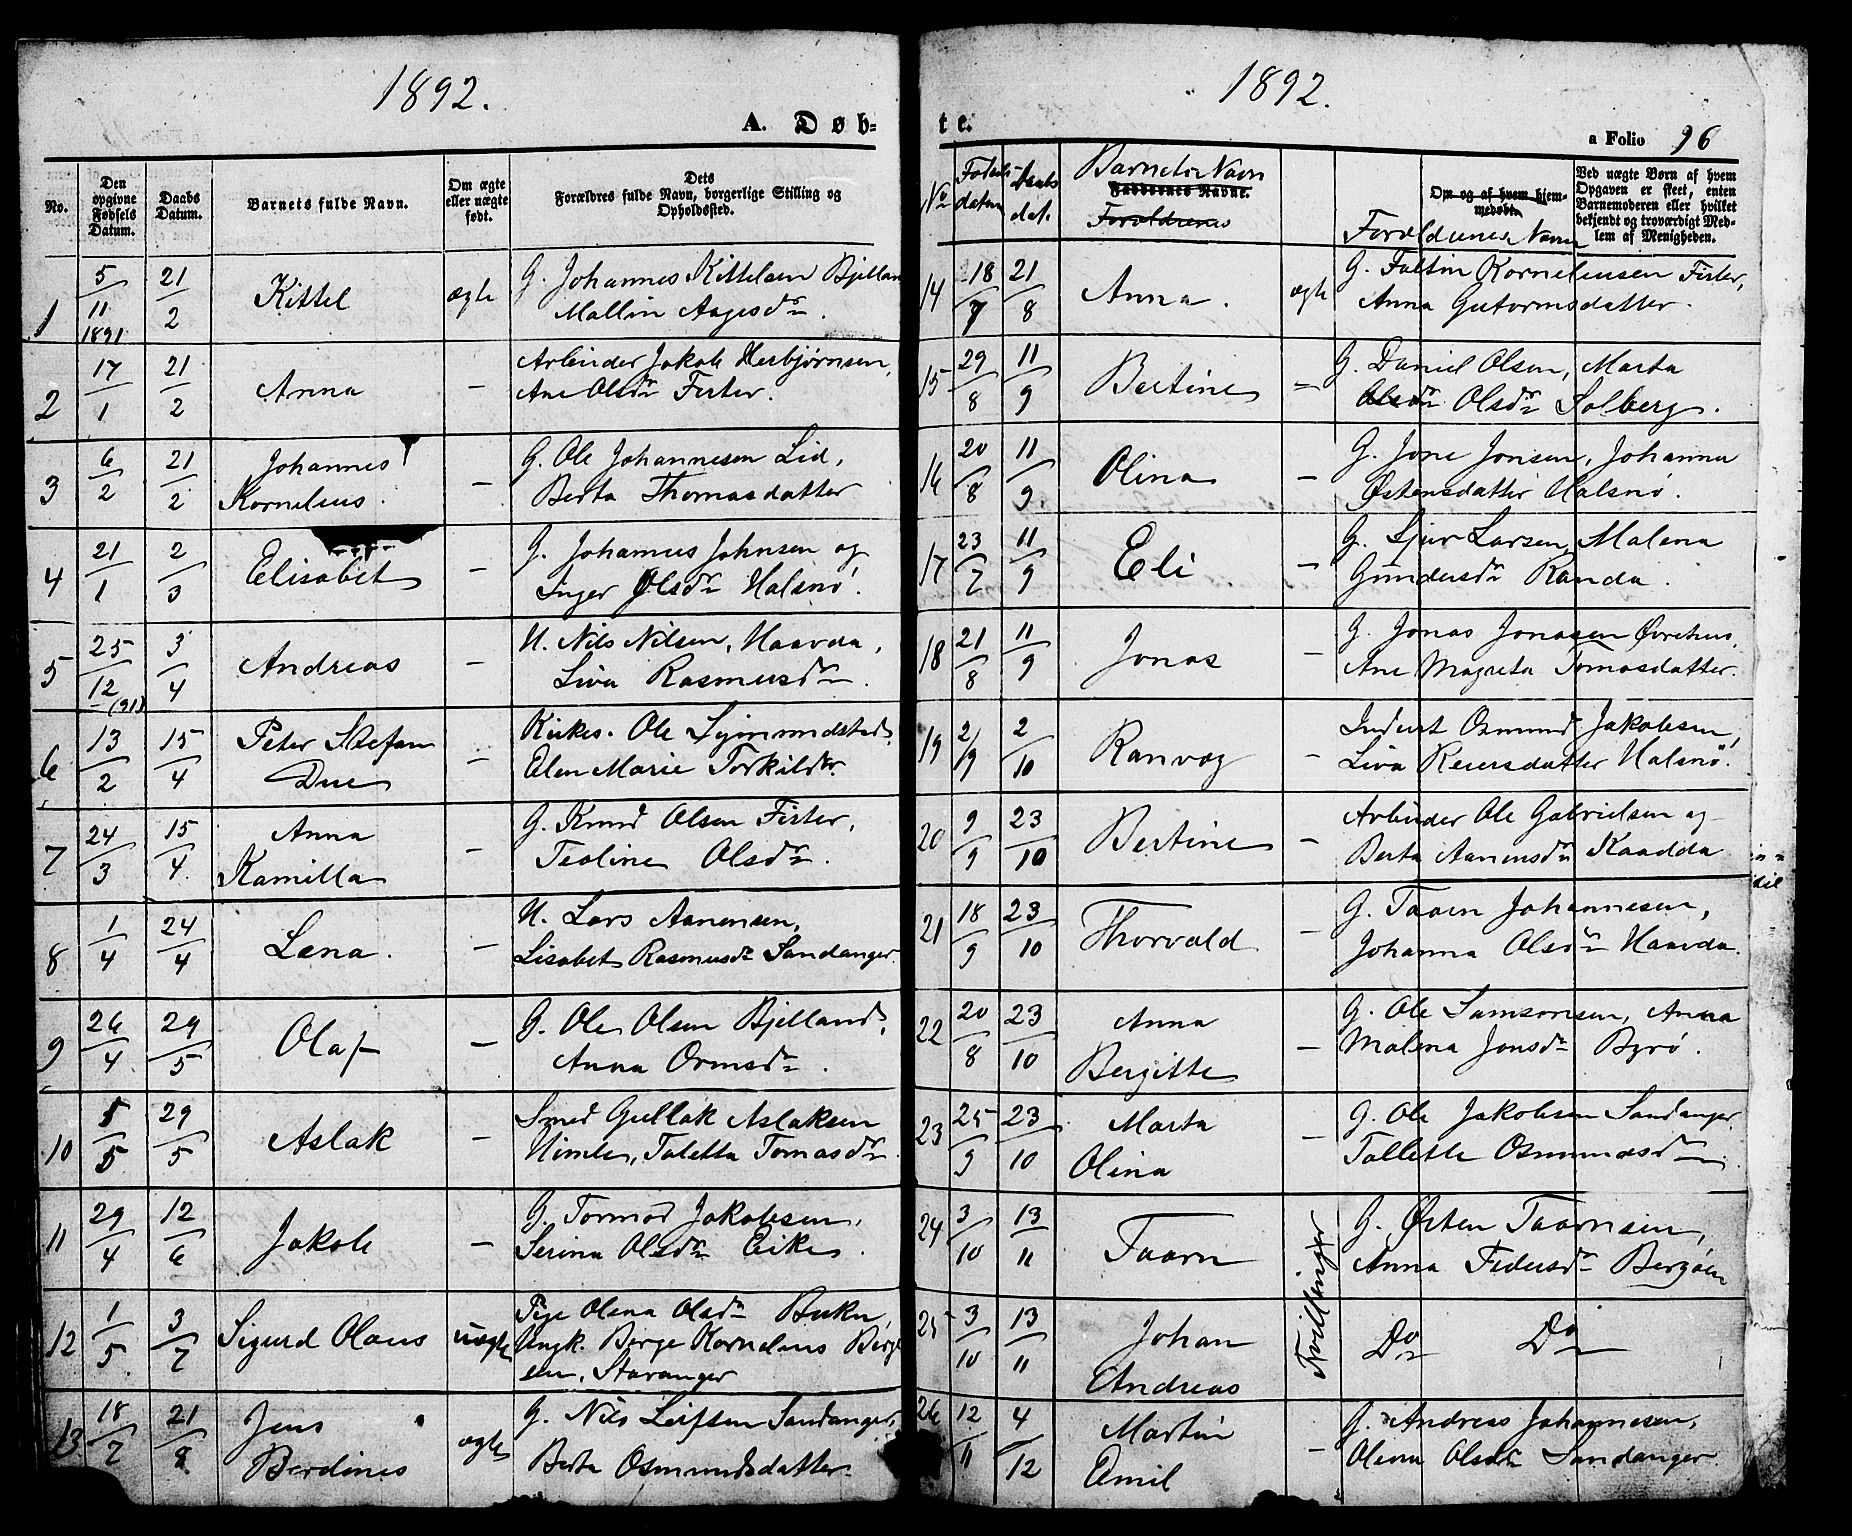 1892.
A. Døb-
No.
Den opgivne Fødsels Datum.
Daabs Datum.
Barnets fulde Navn.
Om ægte eller uægte født.
Dets Forældres fulde Navn, borgerlige Stilling og Opholdssted.
1 5/11 1891 21/2 Kittel ægte G. Johannes Kittelsen Bjelland
Mallin Aagesdr.
2 17/1 21/2 Anna – Arbeider Jakob Herbjørnsen,
Ane Olsdr Fister.
3 6/2 21/2 Johannes – G. Ole Johannesen Lid,
Kornelius. Berta Thomasdatter
4 21/1 2/3 Elisabet – G. Johannes Johnsen og
Inger Olsdr Halsnø.
5 25/12 (91) 3/4 Andreas – N. Nils Nilsen, Haavda,
Liva Rasmusdr.
6 13/2 15/4 Peter Stefan – Kirkes. Ole
Due Elen Marie Torkildsdr.
7 24/3 15/4. Anna – G. Knud Olsen Fister,
Kamilla Teoline Olsdr.
8 1/4 24/4 Lena. – N. Lars Aanensen,
Lisabet Rasmusdr Sandanger.
9 26/4 29/5 Olaf – G. Ole Olsen Bjelland,
Anna Ormsdr.
10 5/5 29/5 Aslak – Smed Gullak Aslaksen
Himle, Taletta Tomasdr.
11 29/4 12/6 Jakob – G. Tormod Jakobsen,
Serina Olsdr Eike.
12 1/5 3/7 Sigurd Olaus uægte Pige Olena Olsdr
Ungk. Berge Kornelius
Stavanger
13 18/7 21/8 Jens ægte G. Nils Leifsen Sandanger,
Berdines Berta Osmundsdatter.
1892.
te.
a Folio 96
No
Fødselsdatum
Daabsdat.
Barnets Navn
Faddernes Navne.
Forældrenes
Om og af hvem hjemmedøbt.
Forældrenes Navn
Ved uægte Børn af hvem Opgaven er skeet, enten Barnemoderen eller hvilket bekjendt og troværdigt Medlem af Menigheden.
14 18/7 21/8 Anna. ægte G. Faltin Korneliussen Fister,
Anna Gutormsdatter.
15 29/8 11/9 Bertine – G. Daniel Olsen, Marta
Olsdr Olsdr Solberg.
16 20/8 11/9. Olina – G. Jone Jonsen, Johanna
Østensdatter Halsnø.
17 23/7 11/9 Eli – G. Sjur Larsen, Malena
Gundersdr Randa.
18 21/8 11/9 Jonas – G. Jonas Jonassen Øvrehus,
Ane Magreta Tomasdatter.
19 2/9 2/10 Ranvog – Inderst Osmund Jakobsen,
Liva Reiersdatter Halsnø.
20 9/9 23/10 Bertine – Arbeider Ole Gabrielsen og
Berta Aanensdr Kaadda
21 18/9 23/10 Thorvald – G. Taarn Johannesen,
Johanna Olsdr Haavda.
22 20/8 23/10 Anna – G. Ole Samsonsen, Anna
Bergitte Malena Jonsdr Byrø.
23 25/9 23/10 Marta – G. Ole Jakobsen Sandanger,
Olina Tallette Osmundsdr
24 3/10 13/11 Taarn Tvillinger G. Østen Taarnsen,
Anna Pedersdr Bergøen
25 3/10 13/11 Johan Do Do
Andreas
26 12/11 4/12 Martin – G. Andreas Johannesen,
Emil Olena Olsdr Sandanger.